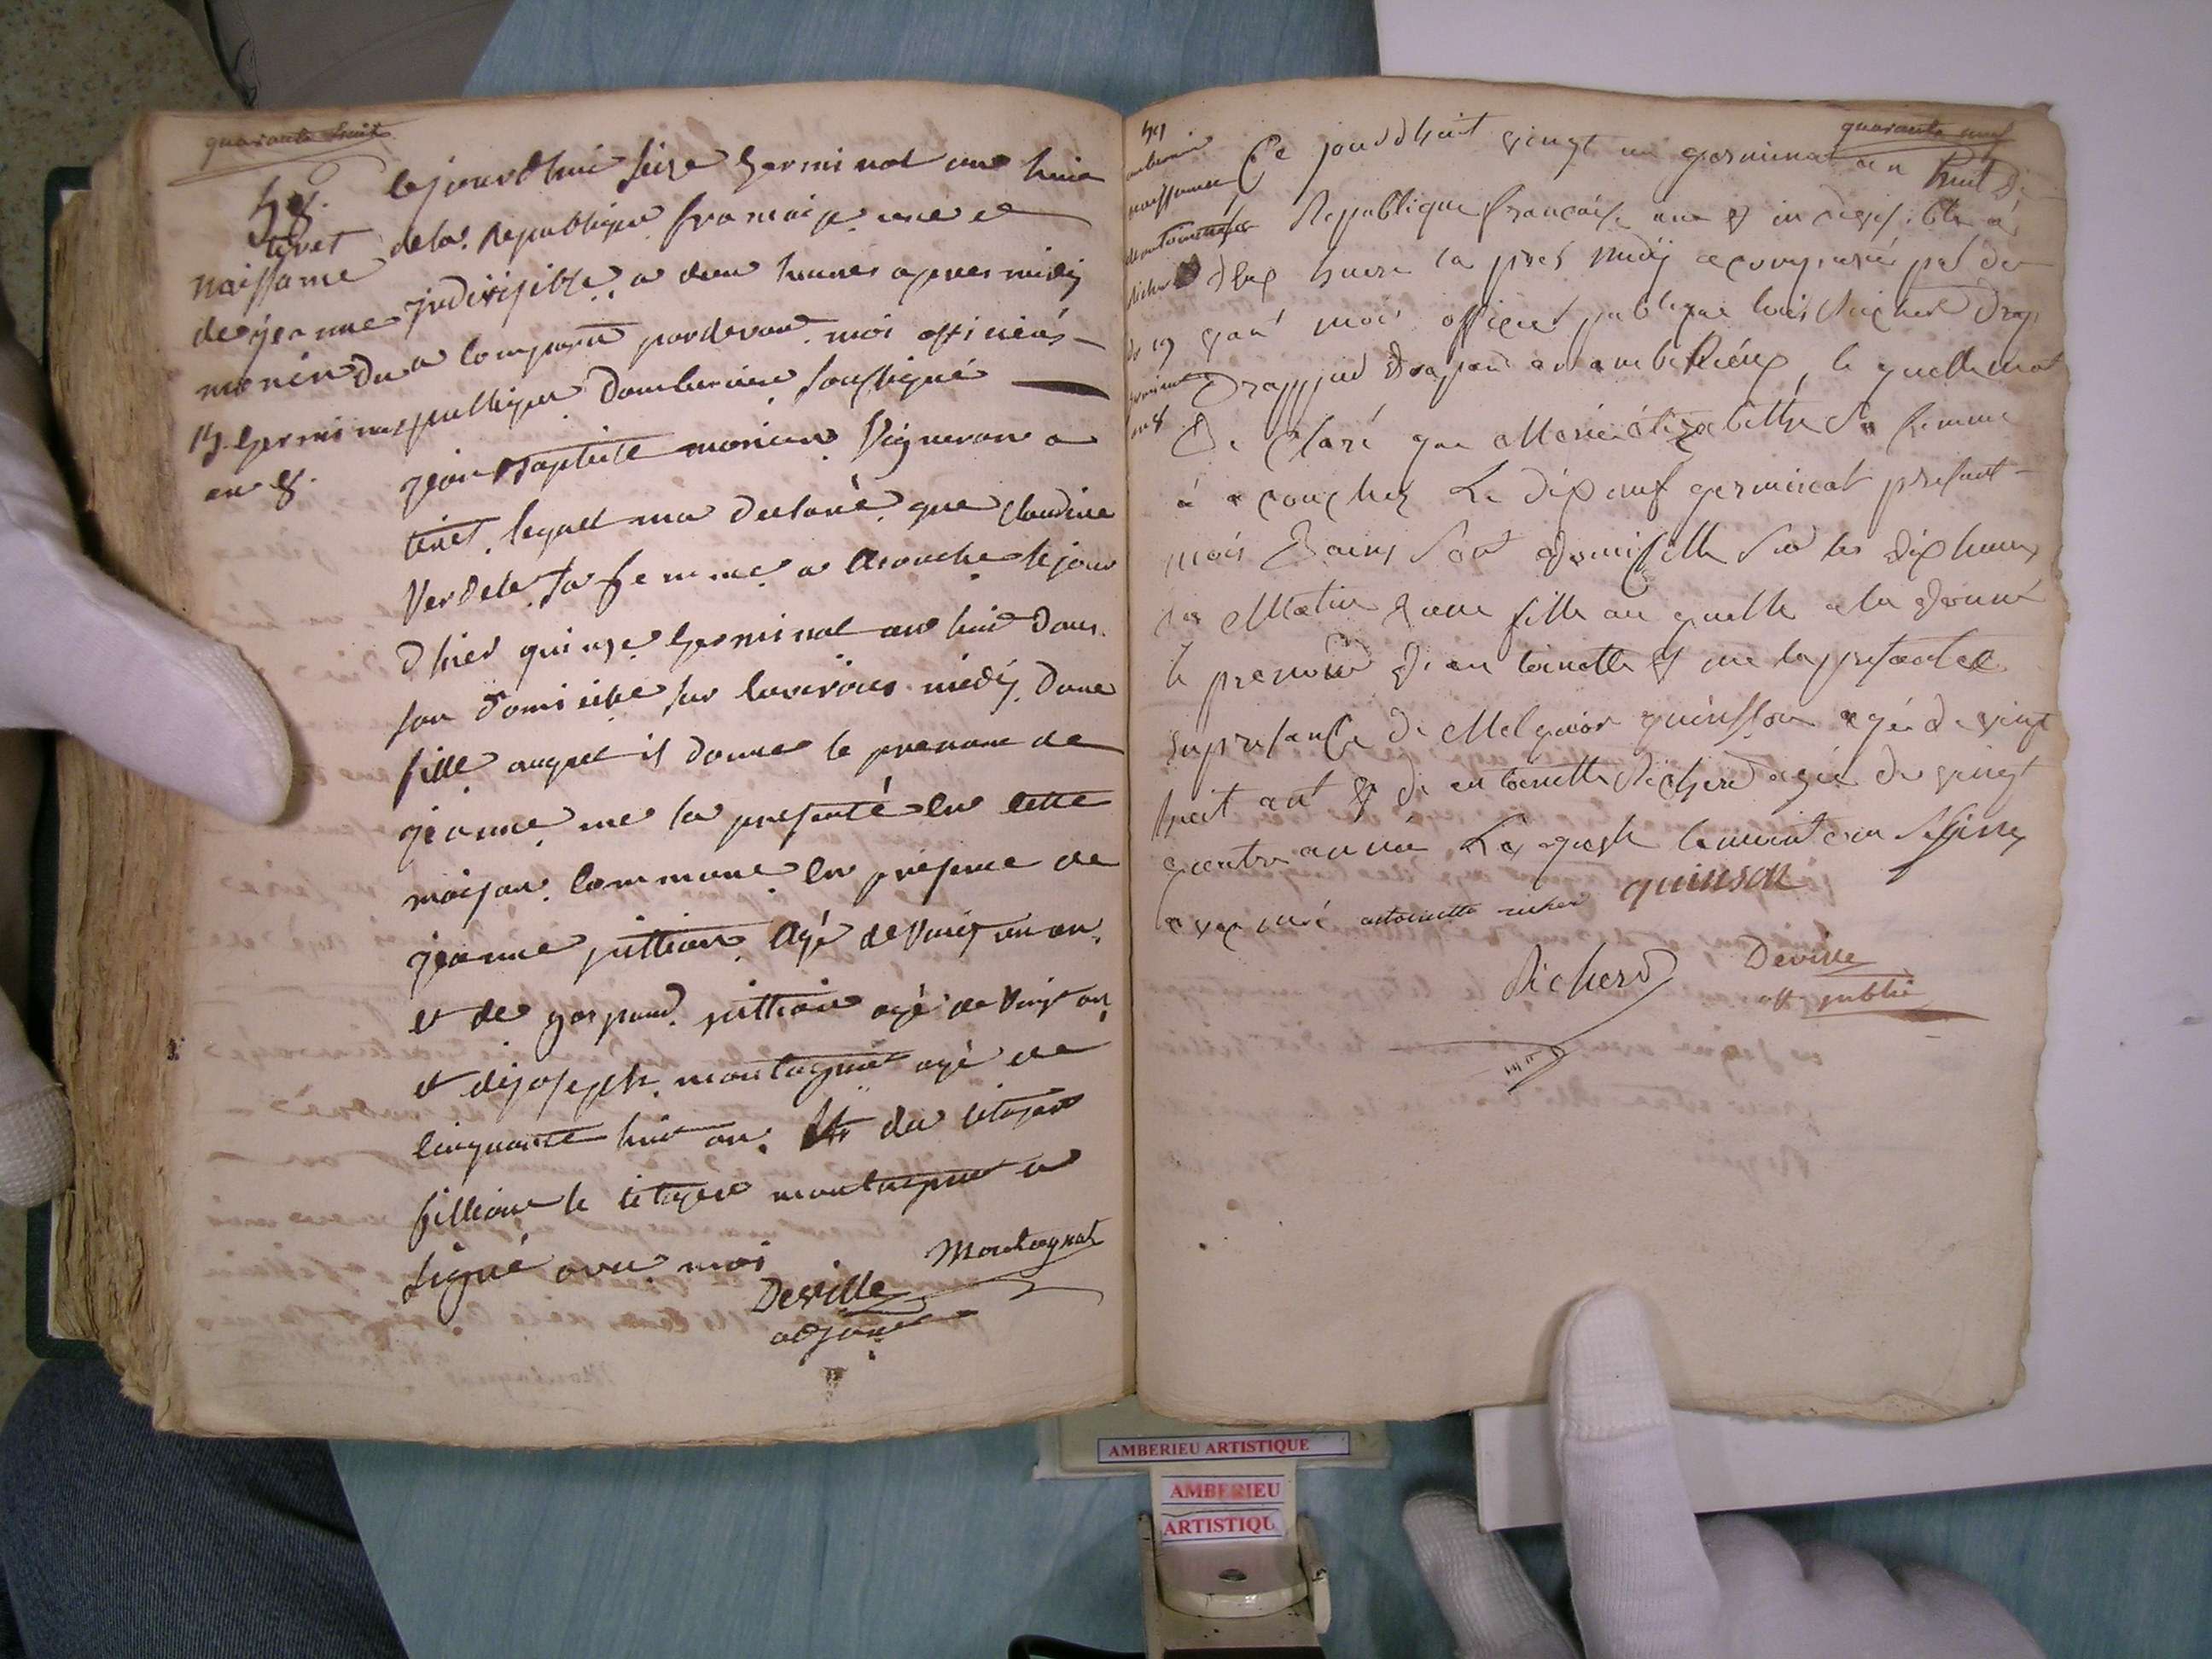 quarante huit
58.
tiret
naissance
de jeanne
monin du
15. germinal
an 8.
Cejourdhui seize germinal an huit
de la Republique francaise une et
indivisible a deux heures apres midy
a comparu pardevant moi officier
publique damberieu soussigné
jean Baptiste monin Vigneron a
tiret lequel ma declaré que claudine
Verdet sa femme a acouche le jour
dhier quinze germinal an huit dans
son domicile sur lenviron midy dune
fille auquel il donne le prenom de
jeanne me la presenté en cette
maison commune en présence de
jeanne agé de vingt un an
et de gaspard agé de vingt an
et de joseph montagnat agé de
cinquante huit an du citoyen
le citoyen montagnat a
signé avec moi
Montagnat
Deville
adjoint
quarante neuf
59
naissance
dantoinette
richerd
an 8
Ce jourdhuit vingt un germinal an huit de
Republique francaise une et indivisible a
deux heure la pres midy pard de
vant moi officier publique louis Richerd
a amberieux, le quelle mat
De claré que Marie élizabethe sa femme
à acoucher Le dix neuf germinal present
mois dans son domisille sur les dix heures
du Matin dune fille au quelle a la donné
le prenom dean toinette et me la presantee
en presance de Melquior quinsson agée de vingt
huit ant et de antoinette Richerd agée de vingt
quatre année Lesquels temoint on signes
avex mois antoinette richer quinson
Richerd
Deville
off public
AMBERIEU ARTISTIQUE
AMBERIEU
ARTISTIQU